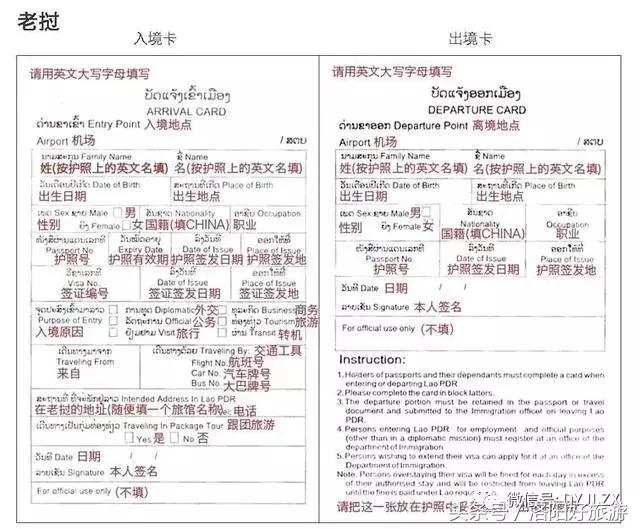 老挝
入境卡
请用英文大写字母填写
ບັດແຈ້ງເຂົ້າເມືອງ
ARRIVAL CARD
ດ່ານຂາເຂົ້າ Entry Point 入境地点
Airport 机场 / ສຕບ
ນາມສະກຸນ Family Name ຊື່ Name
姓(按护照上的英文名填) 名(按护照上的英文名填)
ວັນເດືອນປີເກີດ Date of Birth ສະຖານທີ່ເກີດ Place of Birth
出生日期 出生地点
ເພດ Sex ຊາຍ Male 男 ສັນຊາດ Nationality ອາຊີບ Occupation
性别 ຍິງ Female 女 国籍(填CHINA) 职业
ໜັງສືຜ່ານແດນເລກທີ ວັນໝົດອາຍຸ ລົງວັນທີ ອອກໃຫ້ທີ່
Passport No Expiry Date Date of Issue Place of Issue
护照号 护照有效期 护照签发日期 护照签发地
ວີຊາເລກທີ ລົງວັນທີ ອອກໃຫ້ທີ່
Visa No. Date of Issue Place of Issue
签证编号 签证签发日期 签证签发地
ຈຸດປະສົງເຂົ້າມາລາວ ການທູດ Diplomatic 外交 ທຸລະກິດ Business 商务
Purpose of Entry ລັດຖະການ Official 公务 ທ່ອງທ່ຽວ Tourism 旅游
入境原因 ຢ້ຽມຢາມ Visit 旅行 ຜ່ານ Transit 转机
ເດີນທາງມາຈາກ ເດີນທາງດ້ວຍ Traveling By: 交通工具
Traveling From Flight No. 航班号
来自 Car No. 汽车牌号
Bus No. 大巴牌号
ສະຖານທີ່ ທີ່ຈະພັກຢູ່ລາວ Intended Address In Lao PDR
在老挝的地址(随便填一个旅馆名称) Tel: 电话
ເດີນທາງເປັນກຸ່ມທ່ອງທ່ຽວ Traveling In Package Tour 跟团旅游
Yes 是 No 否
ວັນທີ Date 日期 / /
ລາຍເຊັນ Signature 本人签名
For official use only (不填)
出境卡
请用英文大写字母填写
ບັດແຈ້ງອອກເມືອງ
DEPARTURE CARD
ດ່ານຂາອອກ Departure Point 离境地点
Airport 机场 / ສຕບ
ນາມສະກຸນ Family Name ຊື່ Name
姓(按护照上的英文名填) 名(按护照上的英文名填)
ວັນເດືອນປີເກີດ Date of Birth ສະຖານທີ່ເກີດ Place of Birth
出生日期 出生地点
ເພດ Sex ຊາຍ Male 男 ສັນຊາດ ອາຊີບ
性别 ຍິງ Female 女 Nationality Occupation
国籍(填CHINA) 职业
ໜັງສືຜ່ານແດນເລກທີ ລົງວັນທີ ອອກໃຫ້ທີ່
Passport No. Date of Issue Place of Issue
护照号 护照签发日期 护照签发地
ວັນທີ Date 日期 / /
ລາຍເຊັນ Signature 本人签名
For official use only (不填)
Instruction:
1.Holders of passports and their dependants must complete a card when
entering or departing Lao PDR.
2.Please complete the card in block latters.
3.The departure portion must be retained in the passport or travel
document and submitted to the Immigration officer on leaving Lao
PDR.
4.Persons entering Lao PDR for employment and official purposes
(other than in a diplomatic mission) must register at an office of the
department of Immigration.
5.Persons wishing to extend their visa can apply for it at an office of the
Department of Immigration.
Note: Persons overstaying their visa will be fined for each day in excess
of their authorised stay and will be restricted from leaving Lao PDR
until the fine is paid under Lao
请把这一张放在护照中
微信号: DYJLZX
头条号/洛阳好旅游